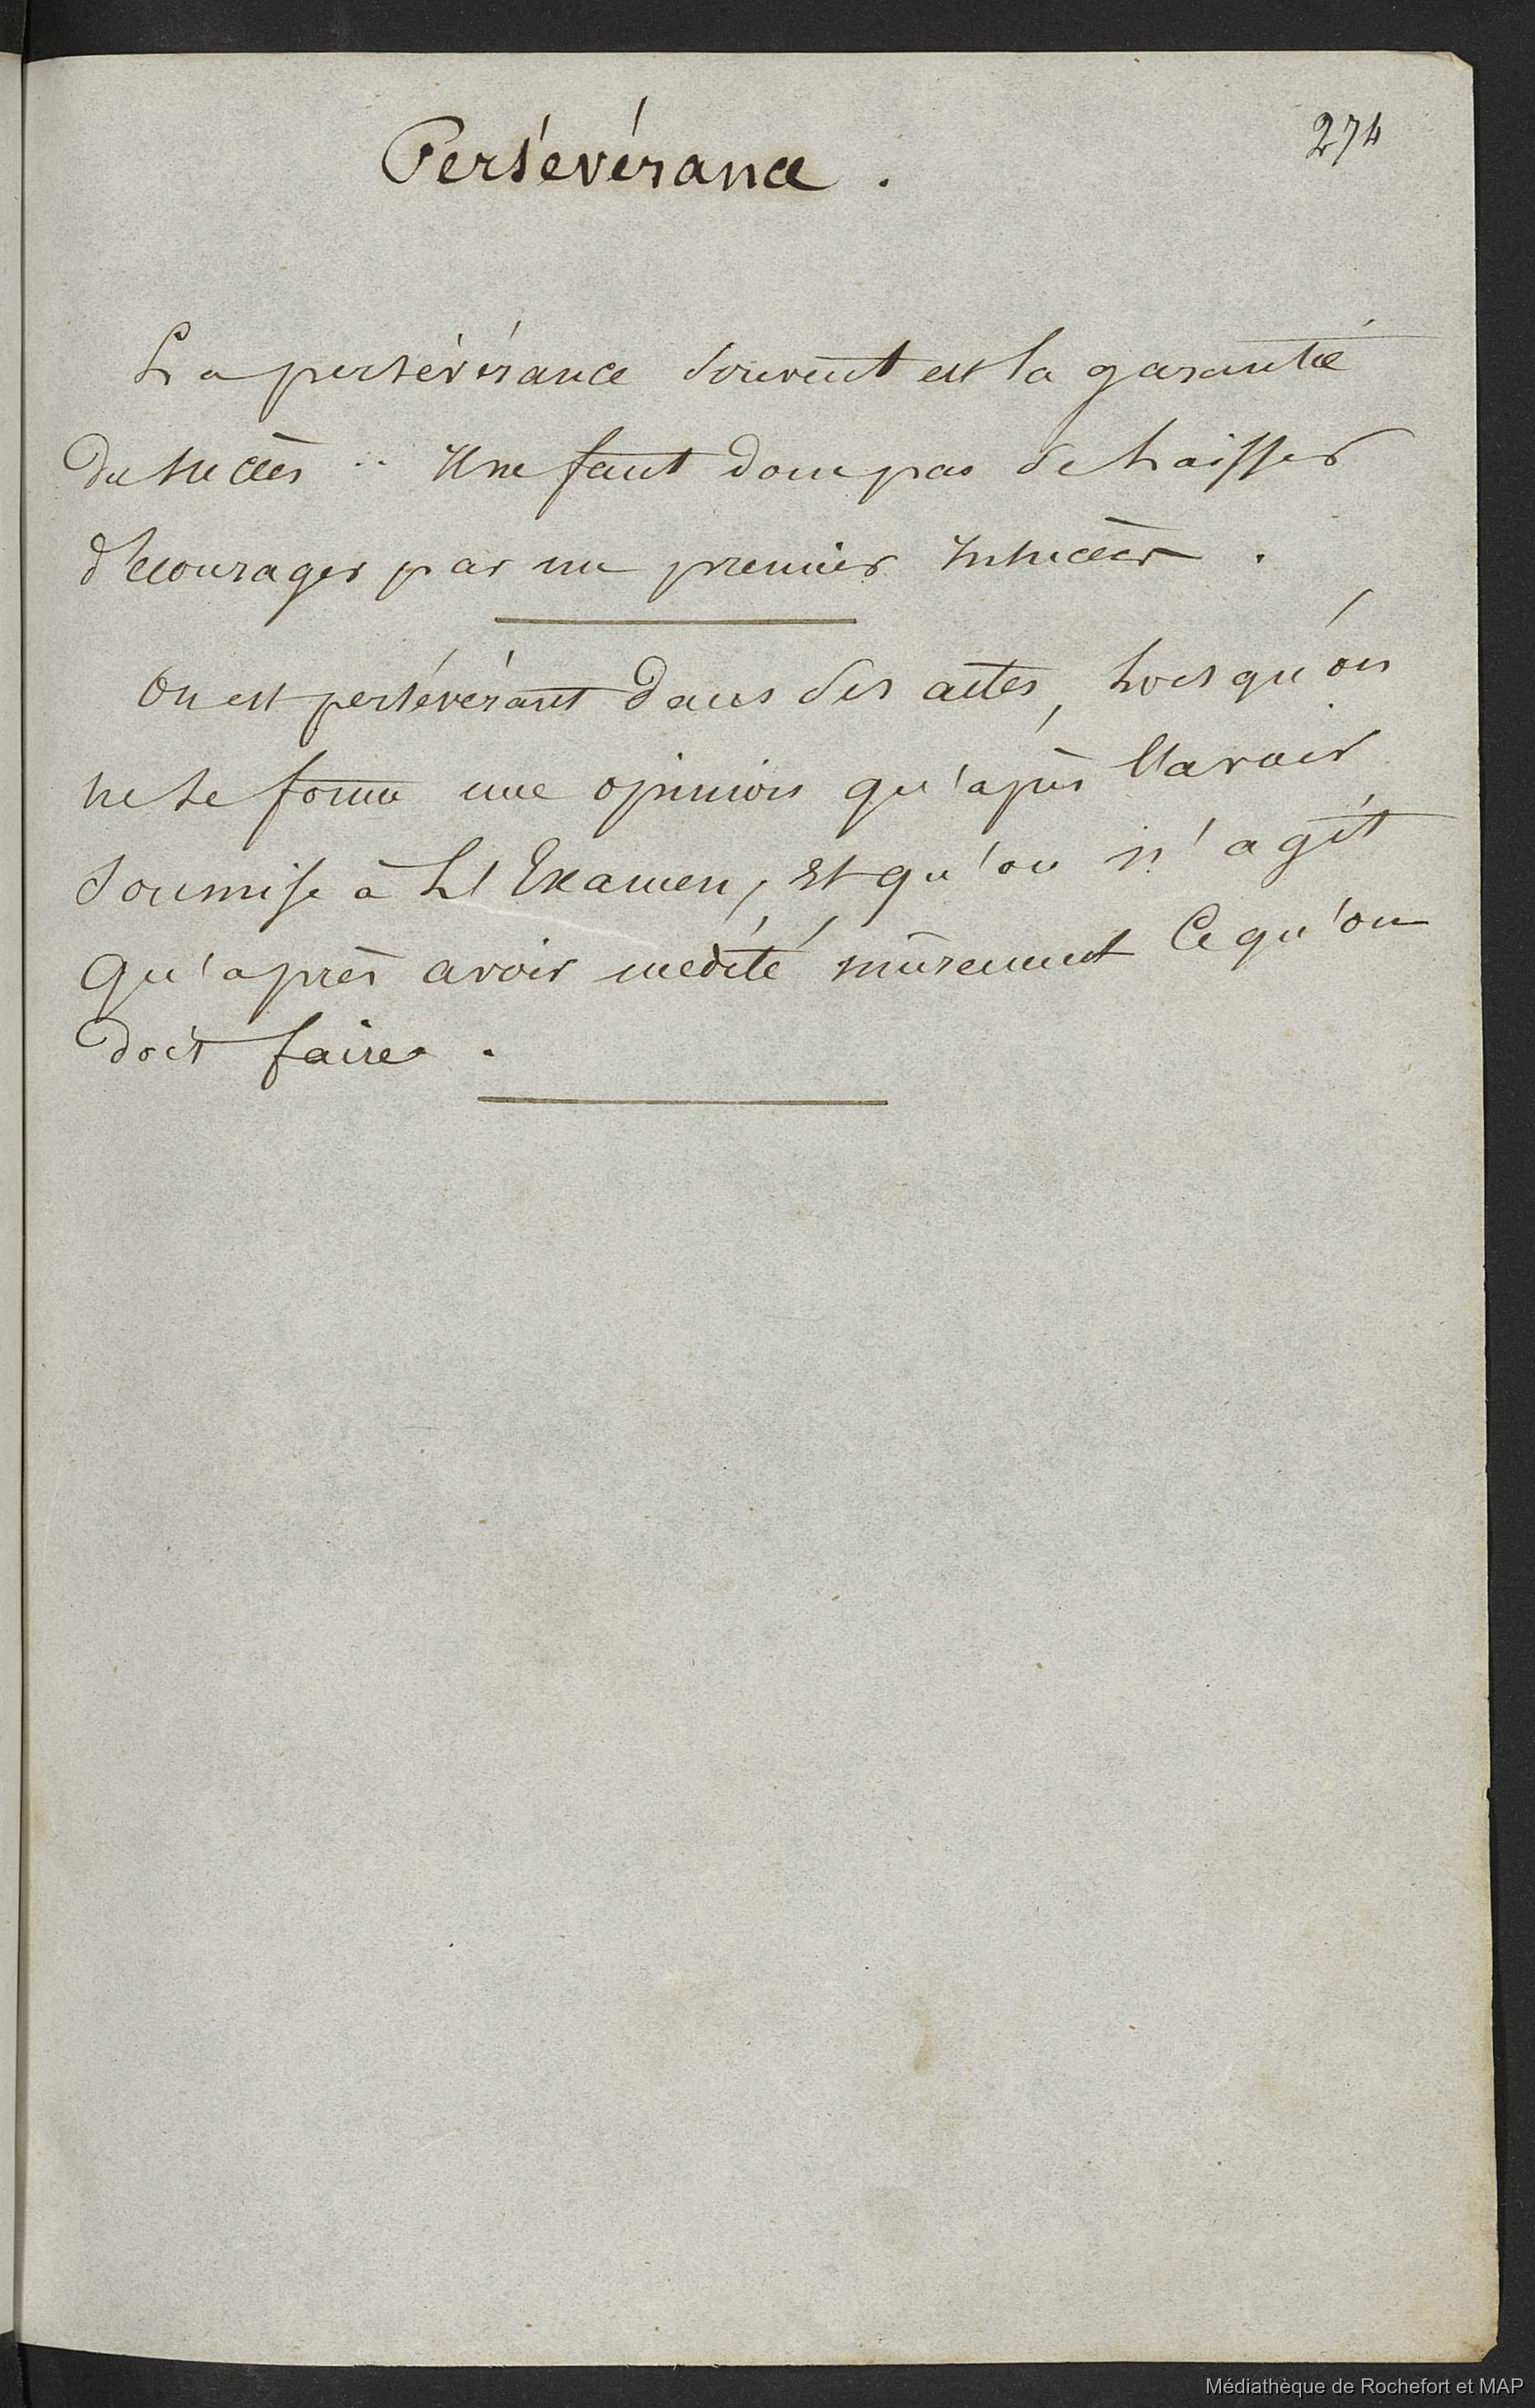 274
Persévérance .
La persévérance souvent est la garantie
du succès .. Il ne faut donc pas se laisser
décourager par un premier insuccès .
On est persévérant dans ses actes, lorsqu'on
ne se forme une opinion qu'après l'avoir
soumise à l'Examen, Et qu'on n'agit
Qu'après avoir médité mûrement Ce qu'on
doit faire .
Médiathèque de Rochefort et MAP